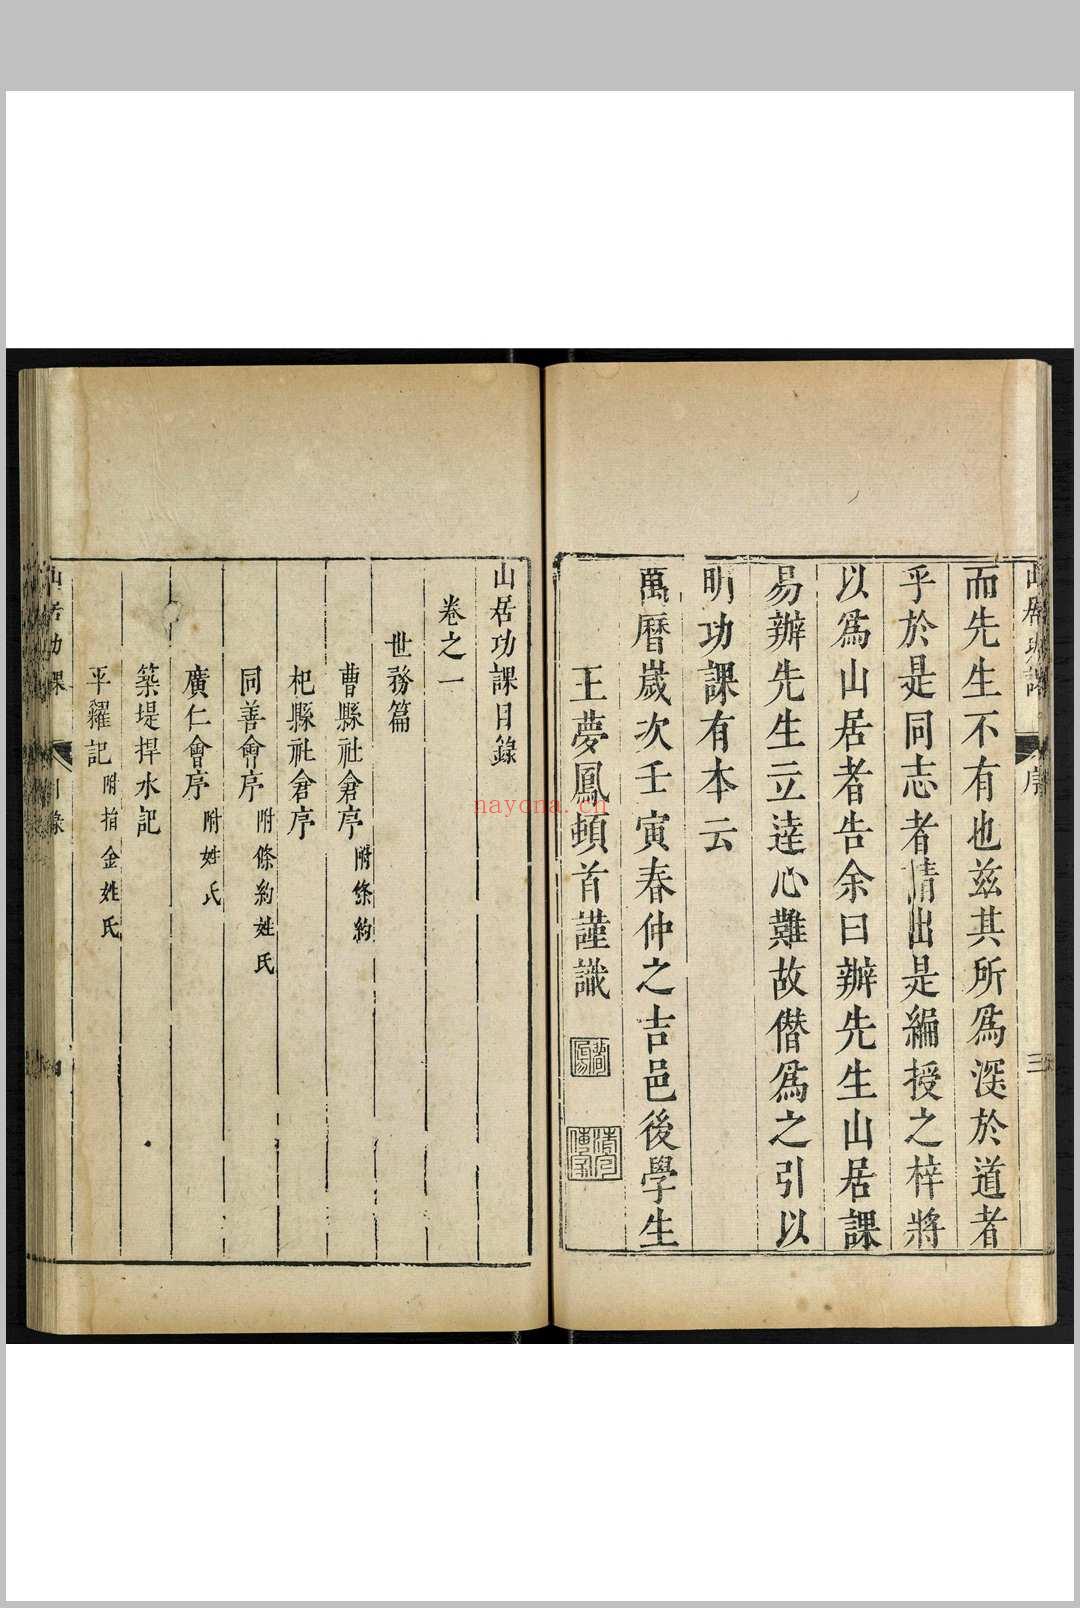 而先生不有也茲其所爲深於道者
乎於是同志者請出是編授之梓將
以爲山居者告余曰辦先生山居課
易辦先生立達心難故僭爲之引以
明功課有本云
萬曆歲次壬寅春仲之吉邑後學生
王夢鳳頓首謹識
山居功課目錄
卷之一
世務篇
曹縣社倉序 附條約
杞縣社倉序
同善會序 附條約姓氏
廣仁會序 附姓氏
築堤捍水記
平糴記 附捐金姓氏
山居功課
nayona.cn